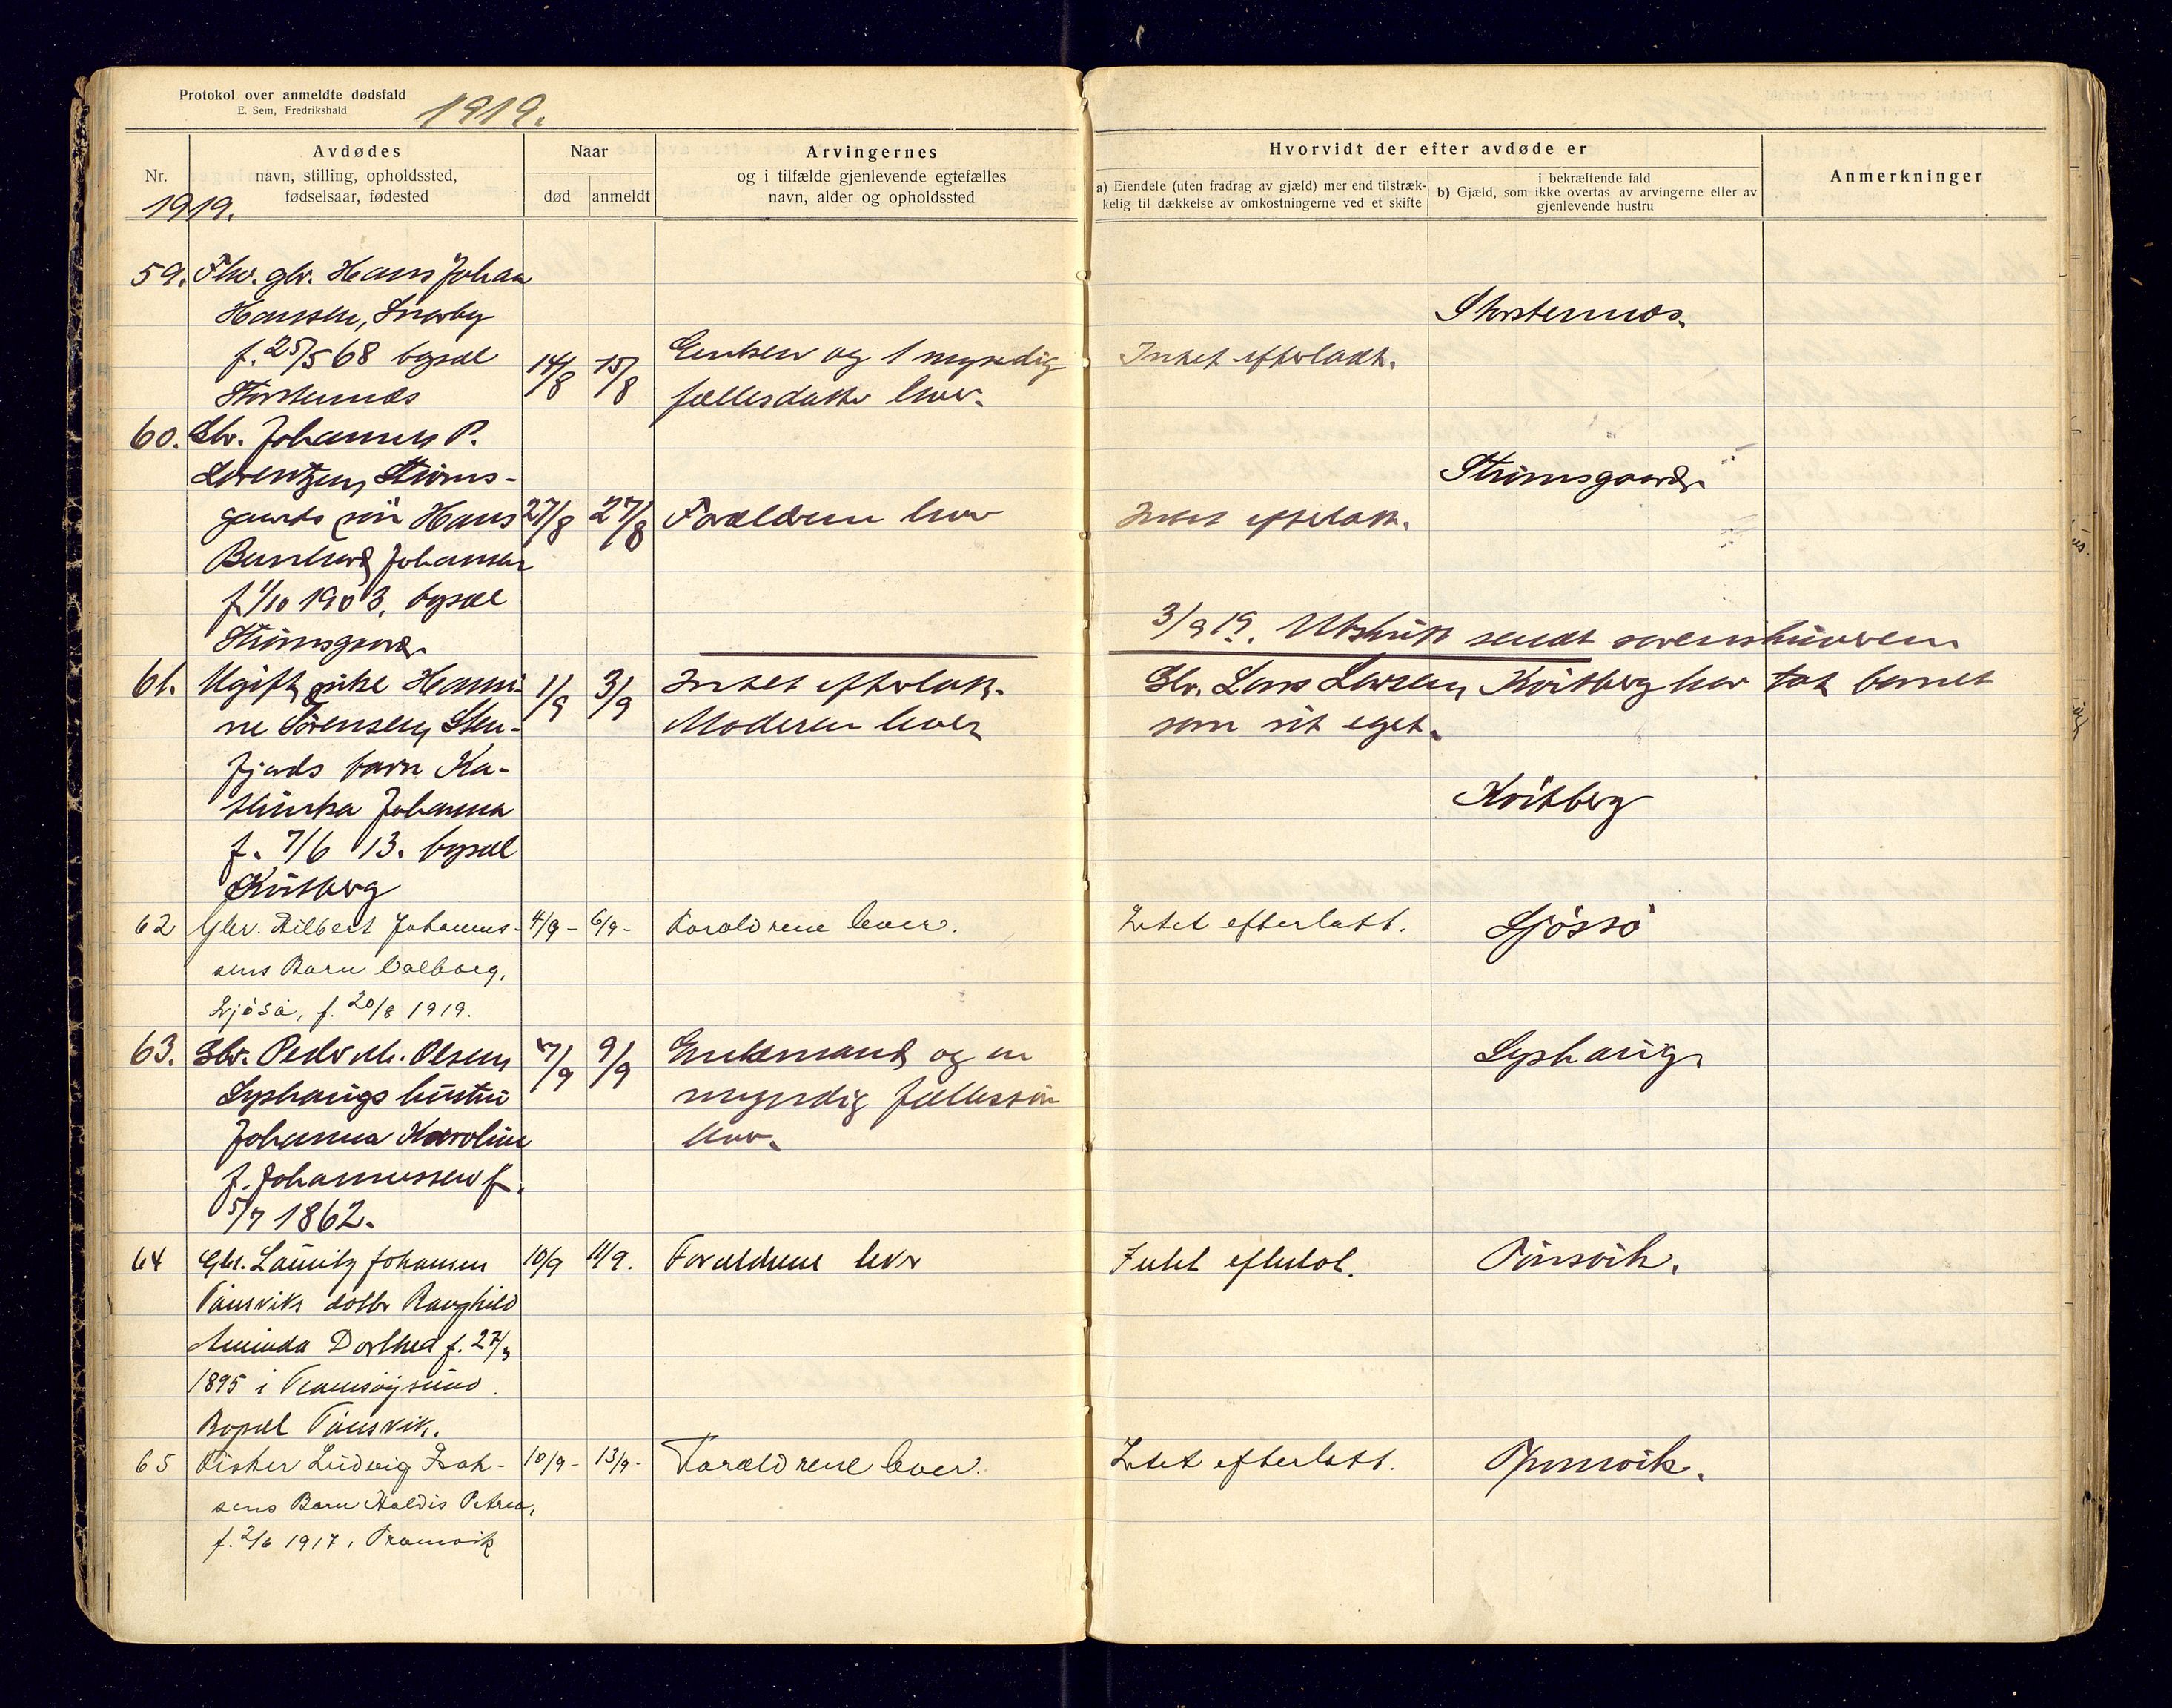 Protokol over anmeldte dødsfald
E. Sem, Fredrikshald
1919.
Nr.
1919.
Avdødes
navn, stilling, opholdssted,
fødselsaar, fødested
Naar
død
anmeldt
Arvingernes
og i tilfælde gjenlevende egtefælles
navn, alder og opholdssted
Hvorvidt der efter avdøde er
a) Eiendele (uten fradrag av gjæld) mer end tilstræk-
kelig til dækkelse av omkostningerne ved et skifte
i bekræftende fald
b) Gjæld, som ikke overtas av arvingerne eller av
gjenlevende hustru
Anmerkninger
59. Fhv. gbr. Hans Johan
Hansen, Snarby
f. 25/5 68 bopæl
Storstennæs
14/8 15/8
Enken og 1 myndig
fællesdatter lever.
Intet efterlatt.
Storstennæs.
60. Gbr. Johannes P.
Lorentzen, Strøms-
gaards søn Hans
Bernhard Johansen
f. 1/10 1903, bopæl
Strømsgaard.
27/8 27/8
Forældrene lever
Intet efterlatt.
Strømsgaard.
3/9 19. Utskrift sendt sorenskriveren
61. Ugift pike Hansi-
ne Sørensen, Sten-
fjords barn Ka-
thinka Johanna
f. 7/6 13. bopæl
Kvitberg
1/9 3/9
Intet efterlatt.
Moderen lever
Gbr. Lars Larsen, Kvitberg har tat barnet
som sit eget.
Kvitberg
62 Gbr. Hilbert Johannes-
sens Barn Valborg,
Sjøsø, f. 20/8 1919.
4/9 - 6/9 -
Forældrene lever.
Intet efterlatt.
Sjøssø
63. Gbr. Peder M. Olsen
Lyshaugs hustru
Johanna Karoline
f. Johannessen f.
5/7 1862.
7/9 9/9
Enkemand og en
myndig fællessøn
lever.
Lyshaug.
64 Gbr. Lauritz Johansen
Tønsviks datter Ragnhild
Aminda Dorthea f. 27/3
1895 i Tromsøysund.
Bopæl Tønsvik.
10/9 11/9.
Forældrene lever
Intet efterlat.
Tønsvik.
65 Fisker Ludvig Isak-
sens Barn Haldis Petrea,
f. 2/6 1917,
10/9 - 13/9 -
Forældrene lever.
Intet efterlatt.